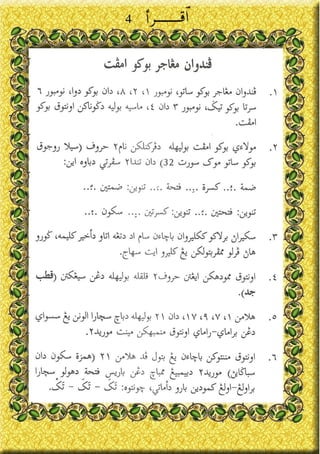 اقرأ 4
ڤندوان مڠاجر بوكو امڤت
١. ڤندوان مڠاجر بوكو ساتو، نومبور ١، ٢، ٨، دان بوكو دوا، نومبور ٦
سرتا بوكو تيݢ، نومبور ٣ دان ٤، ماسيه بوليه دݢوناكن اونتوق بوكو
امڤت.
٢. مولاءي بوكو امڤت بوليهله دڤركنلكن نام٢ حروف (سيلا روجوق
بوكو ساتو موك سورت 32) دان تندا٢ سڤرتي دباوه اين:
ضمة .ُ.. كسرة .ِ.. فتحة .َ.. تنوين: ضمتين .ٌ..
تنوين: فتحتين .ً.. تنوين: كسرتين .ٍ.. سكون .ْ..
٣. سكيران برلاكو ككليروان باچاءن سام اد دتڠه اتاو دأخير كليمه، ݢورو
هاڽ ڤرلو ممڤربتولكن يڠ كليرو ايت سهاج.
٤. اونتوق ممودهكن ايڠتن حروف٢ قلقله بوليهله دڠن سيڠكتن (قطب
جد).
٥. هلامن ١، ٧، ٩، ١٧، دان ٢١ بوليهله دباچ سچارا الونن يڠ سسواي
دڠن براماي-راماي اونتوق منمبهكن مينت موريد٢.
٦. اونتوق منتوكن باچاءن يڠ بتول ڤد هلامن ٢١ (همزة سكون دان
سباݢاين) موريد٢ دبيمبيڠ ممباچ دڠن باريس فتحة دهولو سچارا
براولڠ-اولڠ كمودين بارو دأماتي، چونتوه: تَكَ - تَكْ - تَكَ - تَكْ.